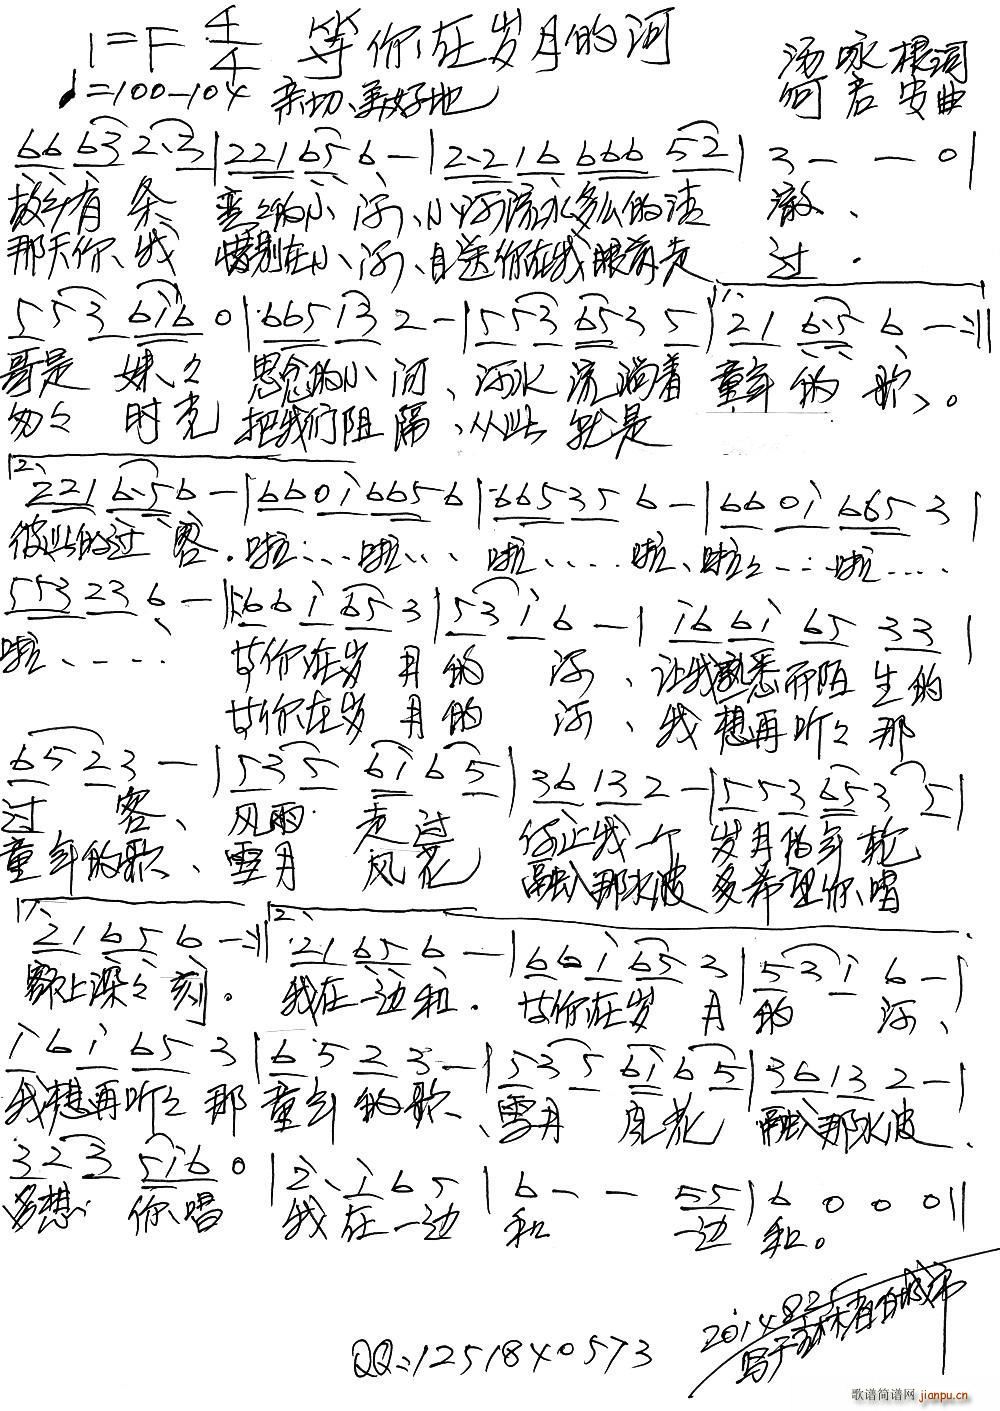 1=F 4/4 等你在岁月的河
♩=100-104 亲切、美好地
汤咏根词
何君安曲
66 63 2·3 | 221 65 6 - | 2·2 16 666 52 | 3 - - 0 |
故乡有条 弯弯的小河、小河流水多么的清澈、
那天你、我 惜别在小河、目送你在我眼前走过.
553 6i6 0 | 665 13 2 - | 553 653 5 | 21 6·5 6 - :||
哥是妹々 思念的小河、河水流淌着 童年的歌、。
匆々时克 把我们阻隔、从此就是
221 6·5 6 - | 66 0i 665 6 | 665 35 6 - | 66 0i 665 3 |
彼此的过客.啦……啦……啦……啦、啦々……啦……
553 23 6 - | 66 i 65 3 | 53 i 6 - | i6 6i 65 33 |
啦、……
等你在岁月的河、让我熟悉而陌生的
等你在岁月的河、我想再听々那
65 23 - | 535 6i 65 | 36 13 2 - | 553 653 5 |
过客、风雨走过 你让我一个岁月的年轮
童年的歌、雪月风花 融入那水波 多希望你、唱
21 65 6 - :|| 21 65 6 - | 66 i 65 3 | 53 i 6 - |
上深々刻。我在一边和.等你在岁月的河、
i6 i 65 3 | 6 5 2 3 - | 535 6i 65 | 36 13 2 - |
我想再听々那童年的歌、雪月风花 融入那水波.
323 5i6 0 | 2· i 65 | 6 - - 55 | 6 0 0 0 ||
多想 你、唱 我在一边 和 一边和。
2014.8.25
QQ:1251840573
歌谱简谱网 jianpu.cn